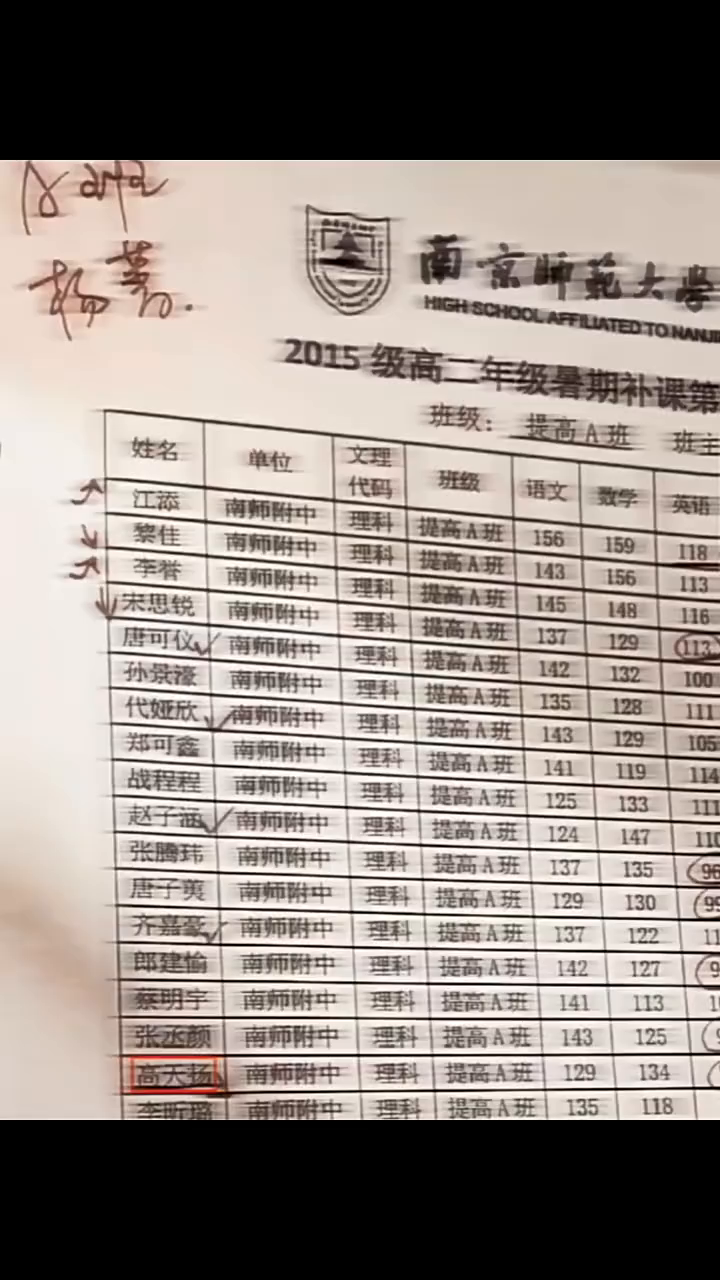 杨菁.
南京师范大学
HIGH SCHOOL AFFILIATED TO NANJI
2015 级高二年级暑期补课第
班级： 提高A班 班主
姓名 单位 文理代码 班级 语文 数学 英语
江添 南师附中 理科 提高A班 156 159 118
黎佳 南师附中 理科 提高A班 143 156 113
李誉 南师附中 理科 提高A班 145 148 116
宋思锐 南师附中 理科 提高A班 137 129 113
唐可仪 南师附中 理科 提高A班 142 132 100
孙景濠 南师附中 理科 提高A班 135 128 111
代娅欣 南师附中 理科 提高A班 143 129 105
郑可鑫 南师附中 理科 提高A班 141 119 114
战程程 南师附中 理科 提高A班 125 133 111
赵子涵 南师附中 理科 提高A班 124 147 110
张腾玮 南师附中 理科 提高A班 137 135 96
唐子荑 南师附中 理科 提高A班 129 130 99
齐嘉豪 南师附中 理科 提高A班 137 122 11
郎建愉 南师附中 理科 提高A班 142 127 9
蔡明宇 南师附中 理科 提高A班 141 113 1
张丞颜 南师附中 理科 提高A班 143 125
高天扬 南师附中 理科 提高A班 129 134
李昕璐 南师附中 理科 提高A班 135 118